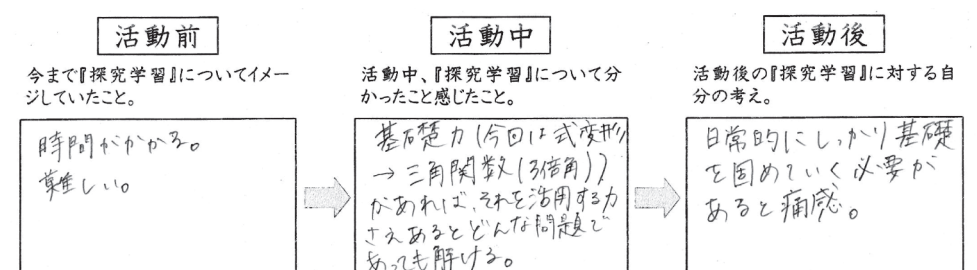 活動前
今まで『探究学習』についてイメー
ジしていたこと。
時間がかかる。
難しい。
活動中
活動中、『探究学習』について分
かったこと感じたこと。
基礎力(今回は式変形
→三角関数(3倍角))
があれば、それを活用する力
さえあるとどんな問題で
あっても解ける。
活動後
活動後の『探究学習』に対する自
分の考え。
日常的にしっかり基礎
を固めていく必要が
あると痛感。